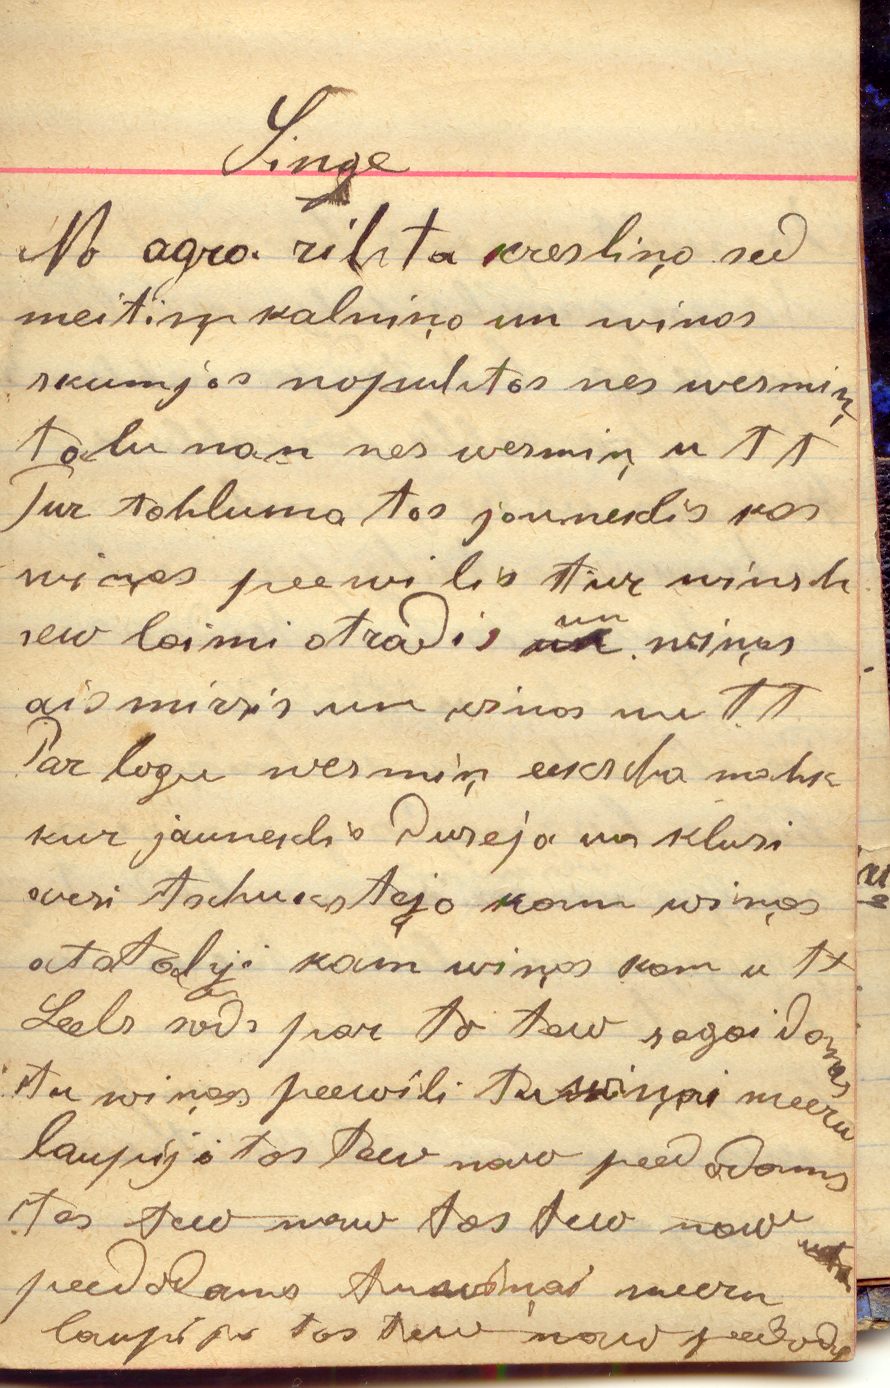 Singe
No agra rihta kresliņo sed
meitiņ kalniņo un wiņas
skumjas nopuhtas nes wermiņ
talu nan nes wermiņ u T T
Tur tahluma tas jauneklis kas
wiņas peewilis tur winsh
sew laimi atradis un wiņas
aismirsis un wiņas un T T
Par logu wermiņ eeksha nahk
kur jauneklis duseja un klusi
ausi tschukstejo kam wiņas
atstalyi kam wiņas kam u T T
Leels sods par to tew sagaidams
tu wiņas peewili tu wiņai meeru
laupiji tas tew naw peedodams
Tas tew naw tas tew naw
peedodams tu wiņai meeru
laupiji tas tew naw peedod